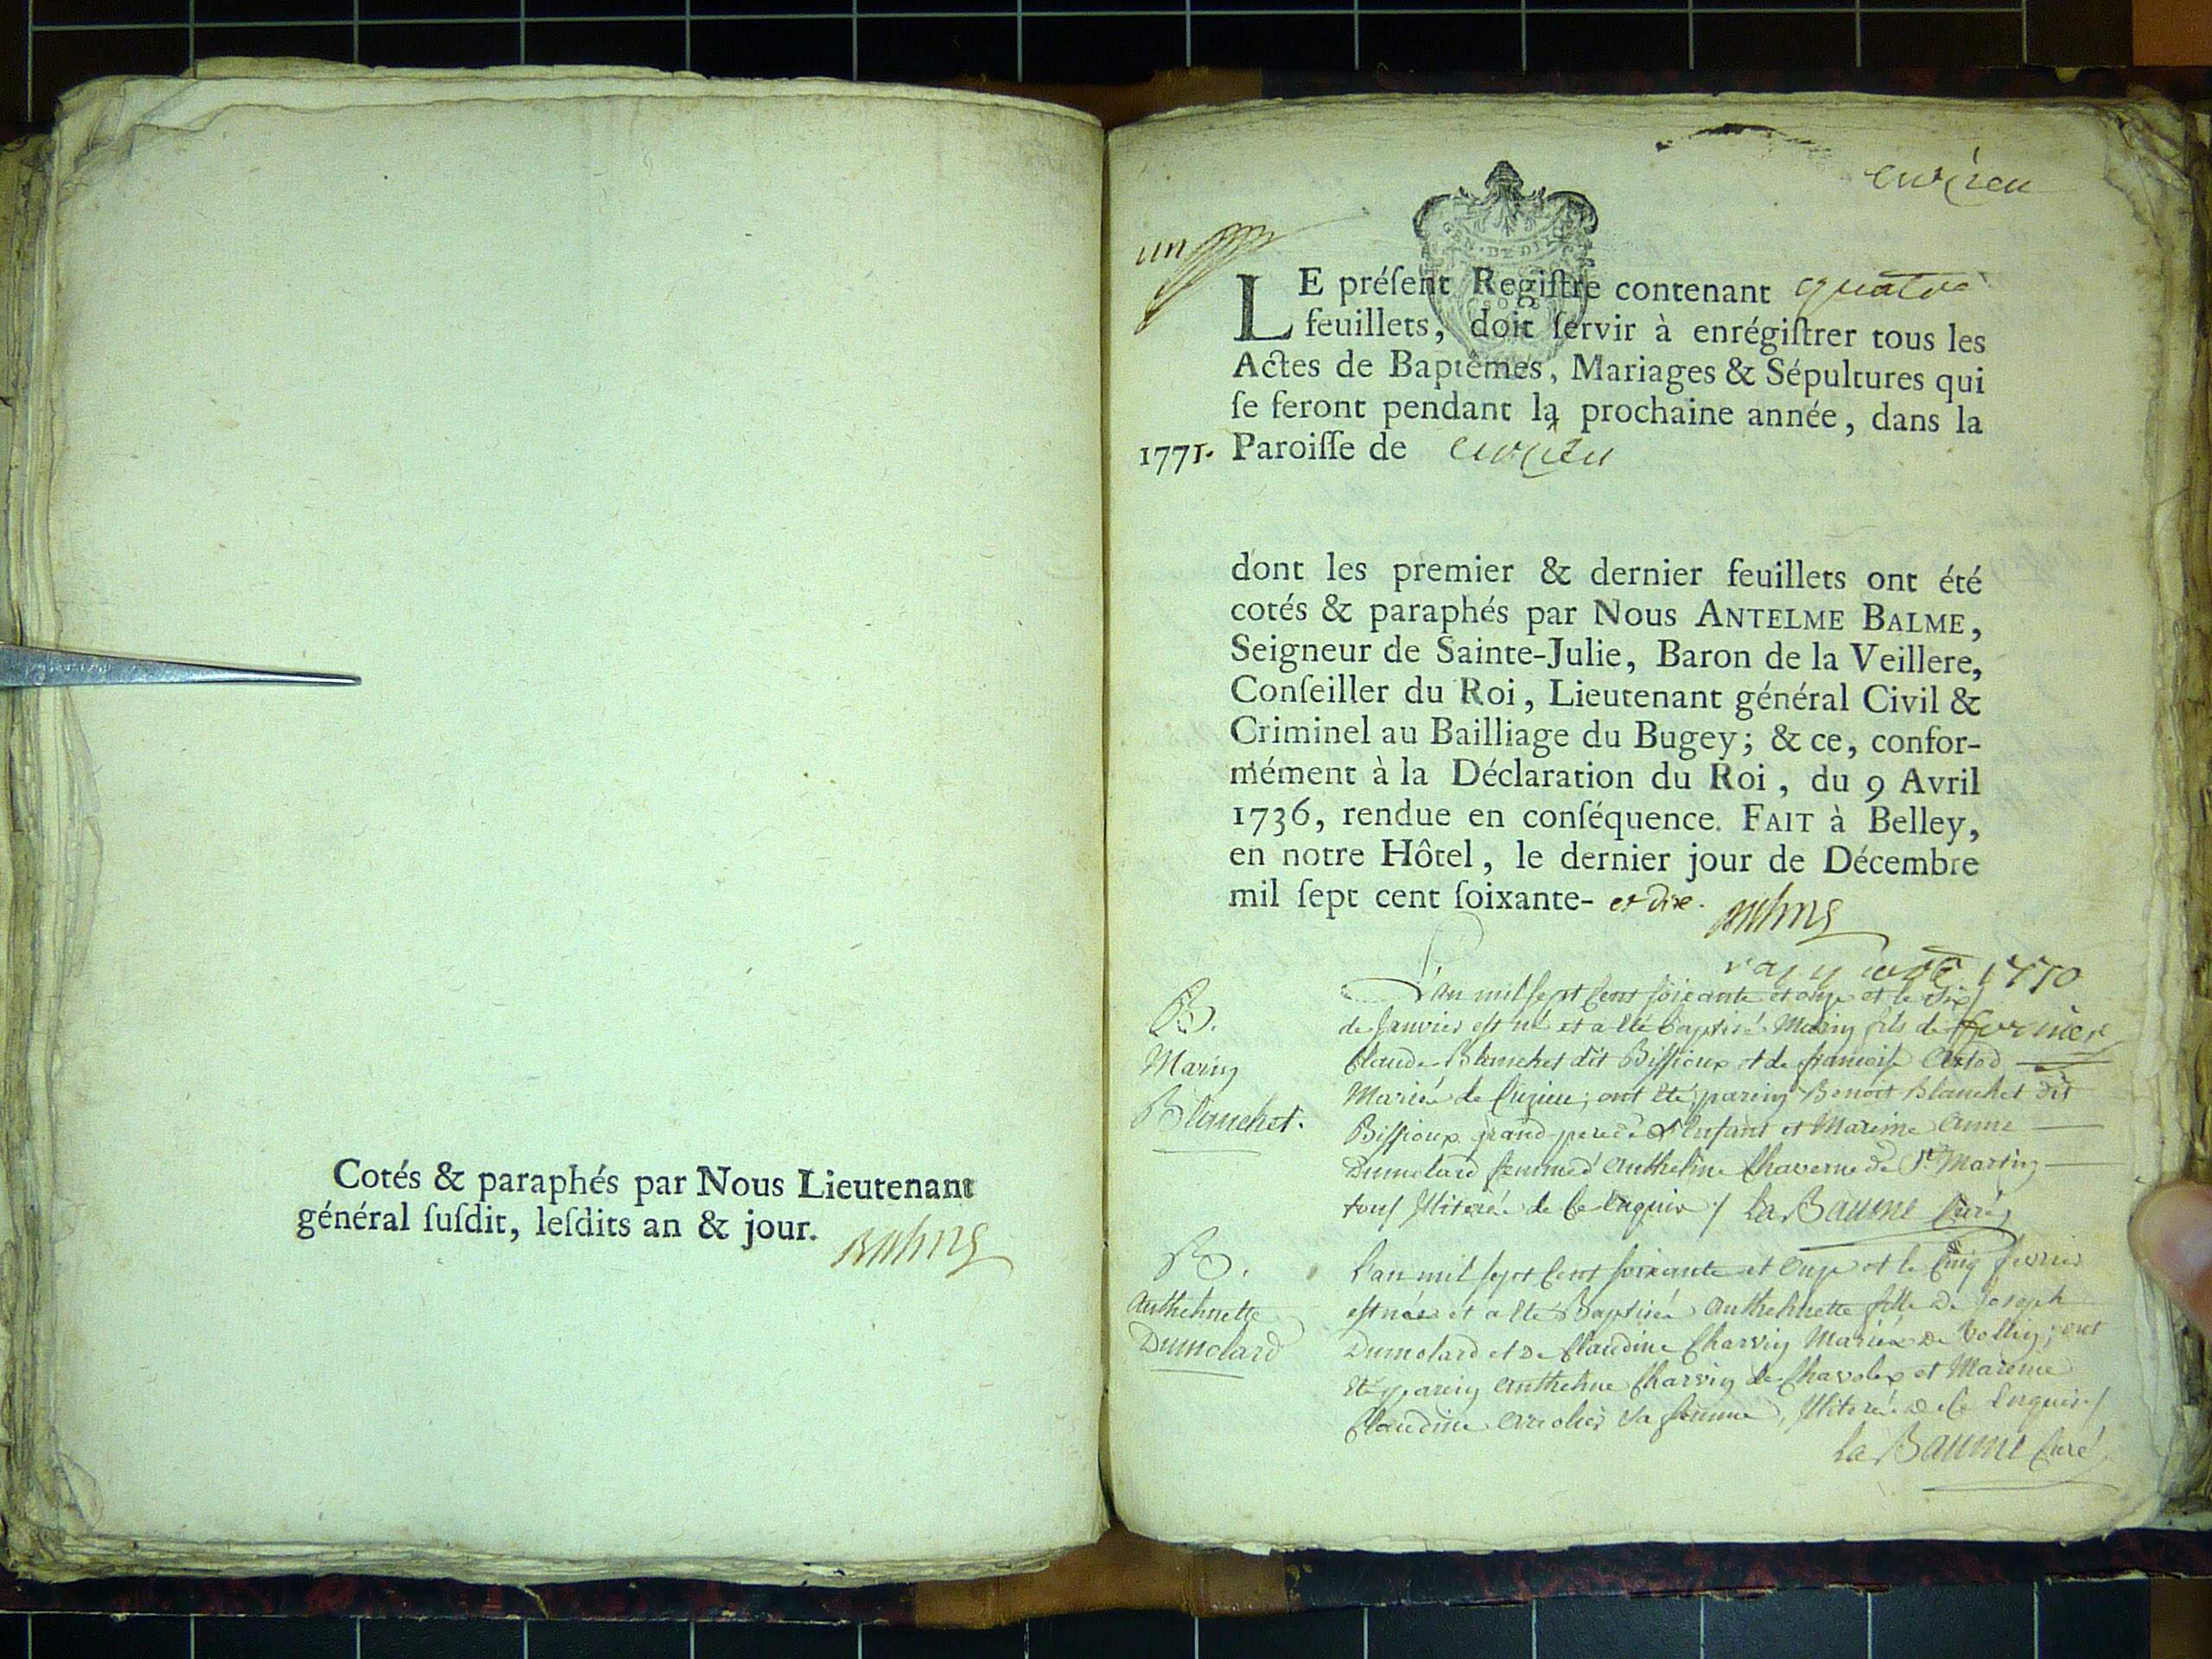 Cotés & paraphés par Nous Lieutenant
général ſuſdit, leſdits an & jour.
Balme
cuzieu
un
GEN. DE DIJON
LE préſent Regiſtre contenant quatre
feuillets, doit ſervir à enrégiſtrer tous les
Actes de Baptêmes, Mariages & Sépultures qui
ſe feront pendant la prochaine année, dans la
1771. Paroiſſe de cuzieu
dont les premier & dernier feuillets ont été
cotés & paraphés par Nous ANTELME BALME,
Seigneur de Sainte-Julie, Baron de la Veillere,
Conſeiller du Roi, Lieutenant général Civil &
Criminel au Bailliage du Bugey; & ce, confor-
mément à la Déclaration du Roi, du 9 Avril
1736, rendue en conſéquence. FAIT à Belley,
en notre Hôtel, le dernier jour de Décembre
mil ſept cent ſoixante- et dix.
Balme
1770
B.
Marin
Blanchet.
L'an mil sept Cent soixante et onze et le Six
de Janvier est né et a été baptisé Marin fils de
Claude Blanchet dit Bissioux et de francoise
Mariés de Cuzieu; ont été parein Benoit Blanchet dit
Bissioux grand-pere de l'Enfant et Mareine Anne
Dumolard femme d'Anthelme Chaverne de St. Martin
tous Illiterés de Ce Enquis / La Baume Curé
B.
Anthelmette
Dumolard
L'an mil sept Cent soixante et Onze et le Cinq fevrier
est née et a été Baptisée Anthelmette fille de Joseph
Dumolard et de Claudine Charvin Mariés de Vollin; ont
été parein Anthelme Charvin de Chavolex et Mareine
Claudine sa femme, Illiterés de Ce Enquis /
La Baume Curé